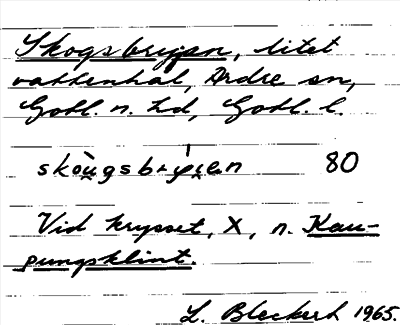 Skogsbryan, litet
vattenhål, Ardre sn,
Gotl. n. hd, Gotl. l.
80
Vid krysset, X, n. Kau-
pungsklint.
L. Bleckert 1965.